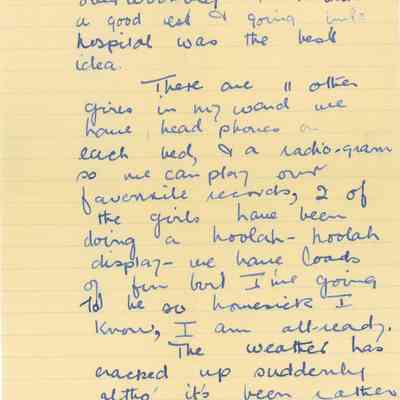 a good rest & going into
hospital was the best
idea.
There are 11 other
girls in my ward we
have head phones on
each bed, & a radio-gram
so we can play our
favourite records, 2 of
the girls have been
doing a hoolah-hoolah
display- we have loads
of fun but I'me going
to be so homesick I
know, I am all-ready.
The weather has
cracked up suddenly
altho' it's been rather